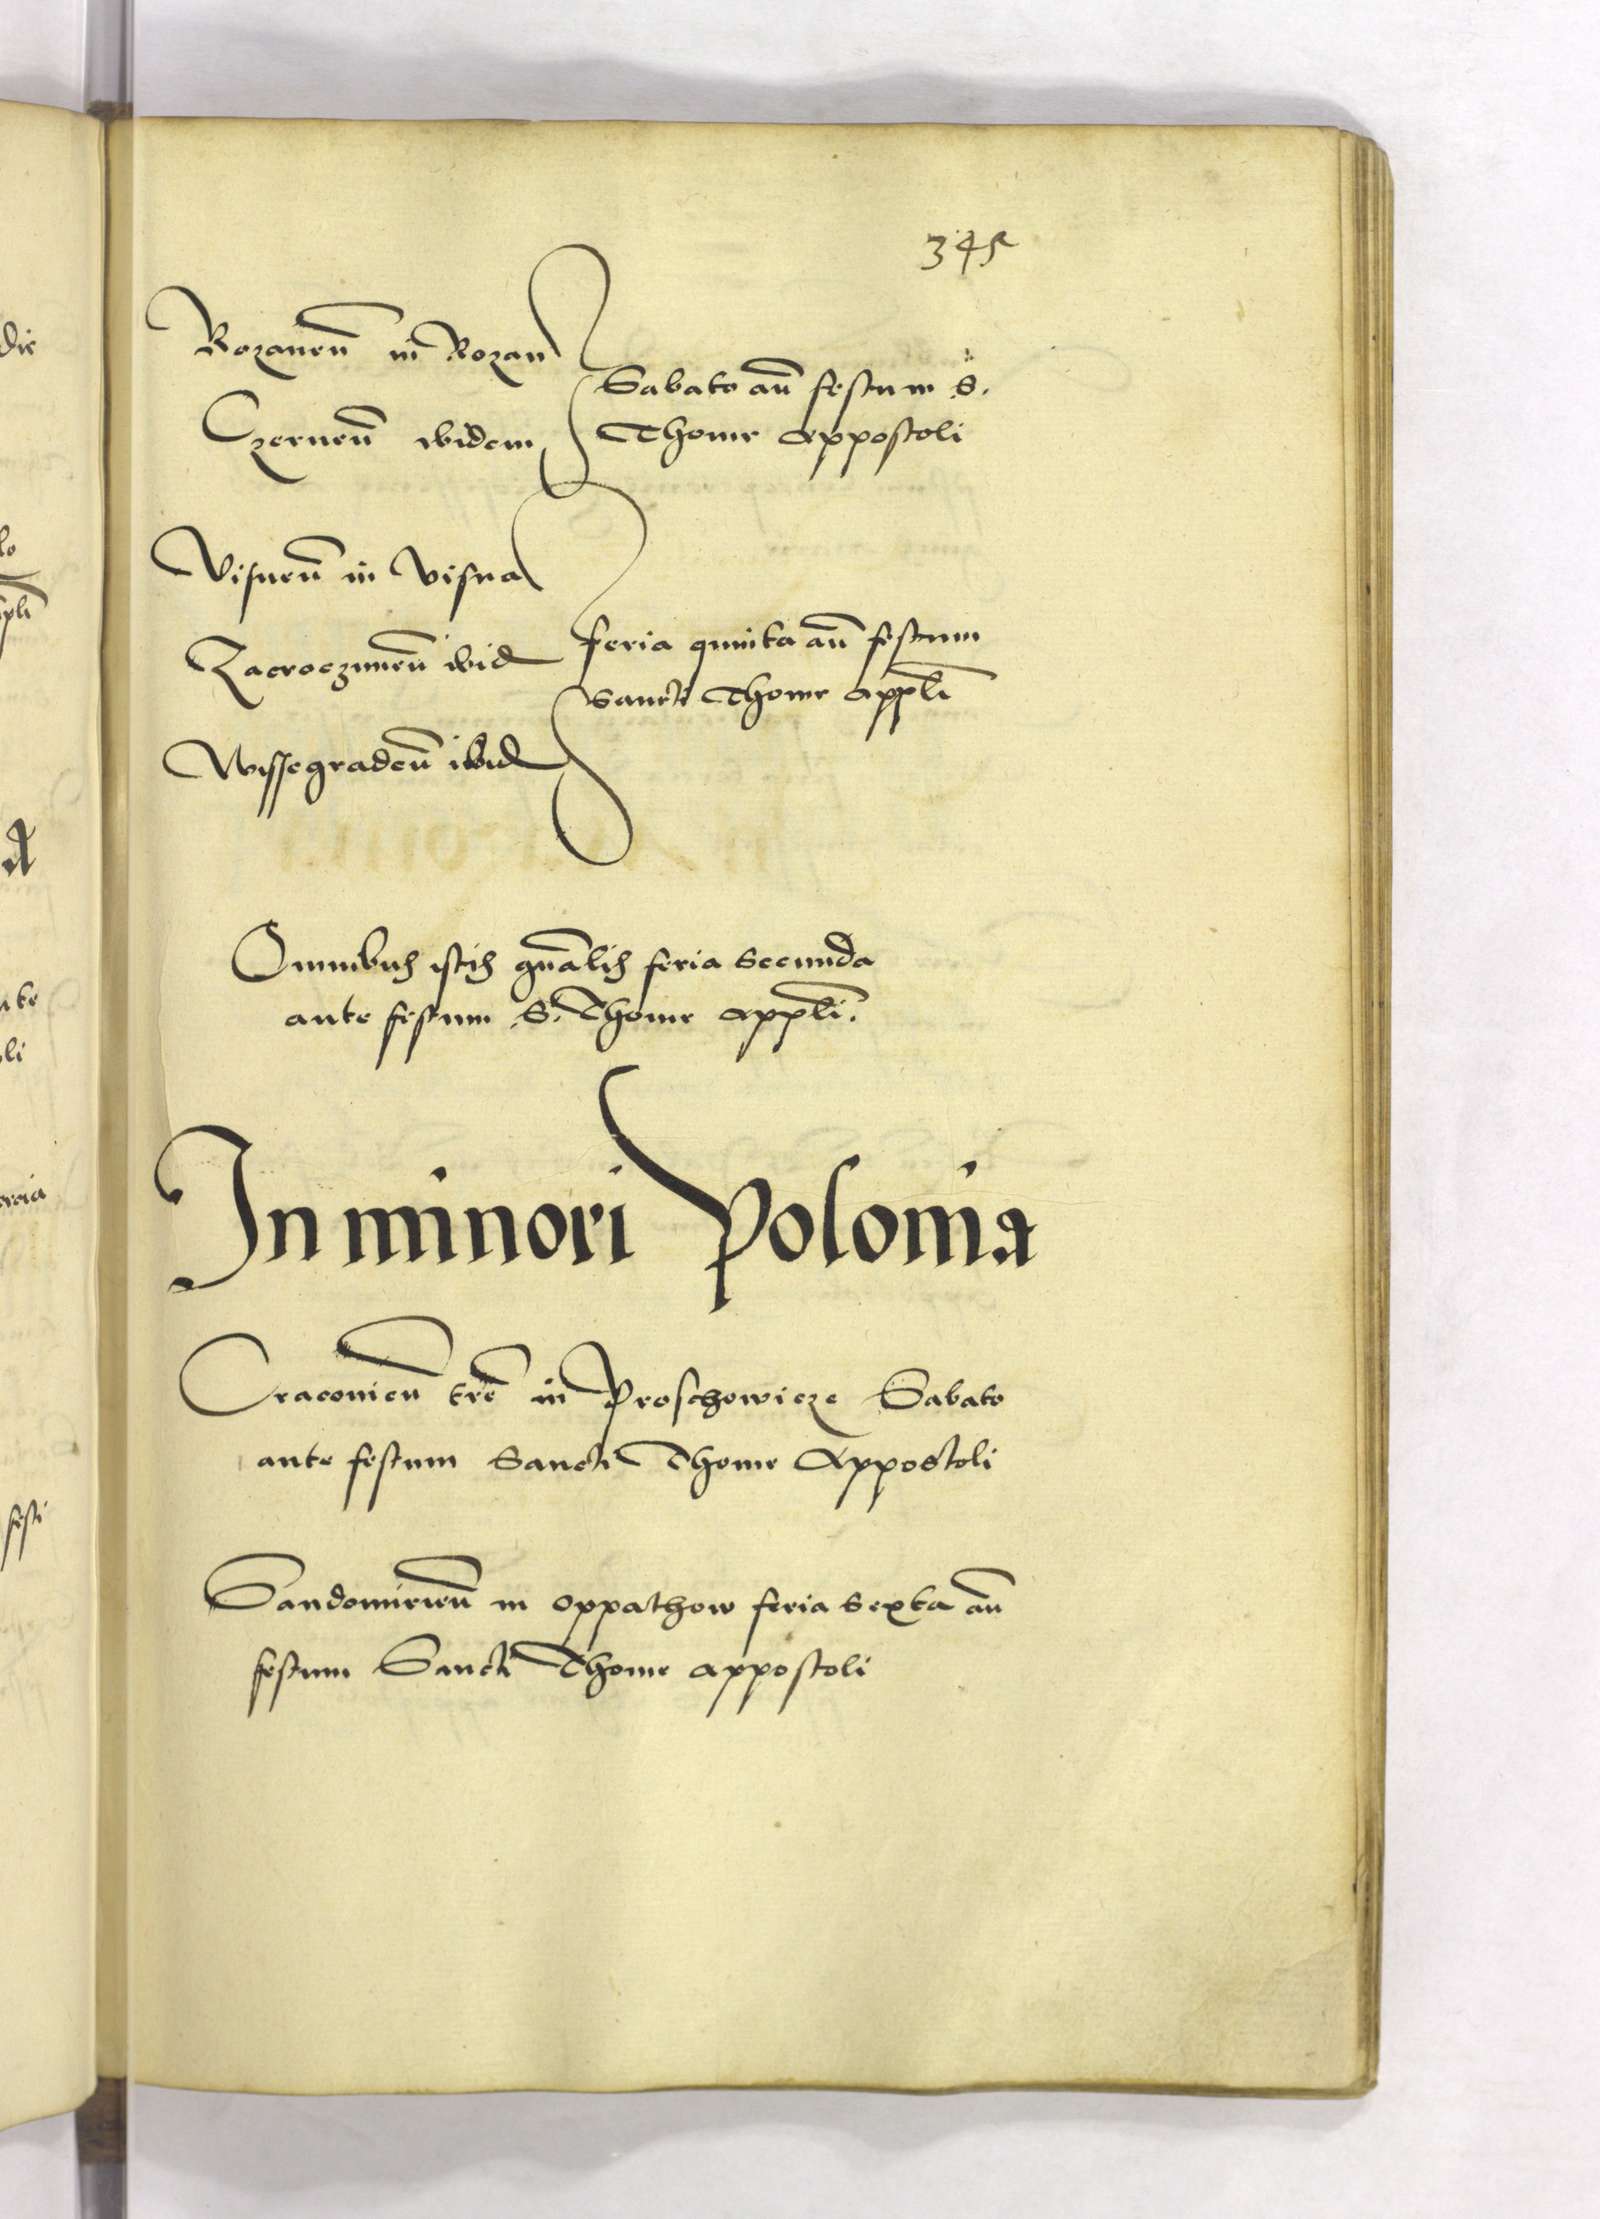 345
Rozaneñ in Rozan
Czerneñ ibidem
Sabato añ festum S.
Thome Appostoli
Visneñ in Visna
Zacroczimeñ ibid
Wissegradeñ ibid
feria quinta añ festum
Sancti Thome appli
Omnibus istis gnalis feria Secunda
ante festum S. Thome appli.
In minori Polonia
Cracovieñ tre in Proschowicze Sabato
ante festum Sancti Thome Appostoli
Sandomirieñ in Oppathow feria Sexta añ
festum Sancti Thome appostoli